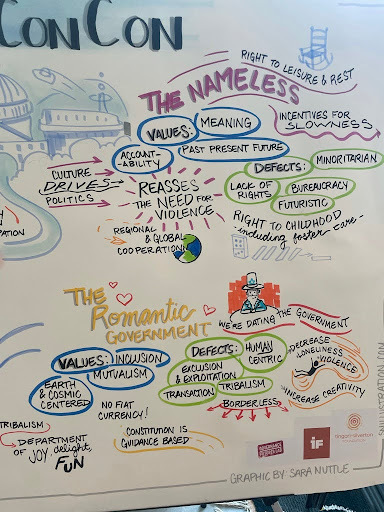 CON CON
RIGHT TO LEISURE & REST
THE NAMELESS
VALUES:
MEANING
INCENTIVES FOR
SLOWNESS
PAST PRESENT FUTURE
ACCOUNT-
ABILITY
DEFECTS:
MINORITARIAN
CULTURE
DRIVES
POLITICS
REASSES
THE NEED FOR
VIOLENCE
LACK OF
RIGHTS
BUREAUCRACY
FUTURISTIC
REGIONAL
& GLOBAL
COOPERATION
RIGHT TO CHILDHOOD
-including foster care-
PATION
THE
Romantic
GOVERNMENT
WE'RE DATING THE GOVERNMENT
VALUES:
INCLUSION
MUTUALISM
EARTH
& COSMIC
CENTERED
NO FIAT
CURRENCY!
DEFECTS:
HUMAN
CENTRIC
EXCLUSION
& EXPLOITATION
TRANSACTION
TRIBALISM
BORDERLESS
DECREASE
LONELINESS
VIOLENCE
INCREASE CREATIVITY
TRIBALISM
DEPARTMENT
OF JOY, delight,
FUN
CONSTITUTION IS
GUIDANCE BASED
iF
GRAPHIC BY: SARA NUTTLE